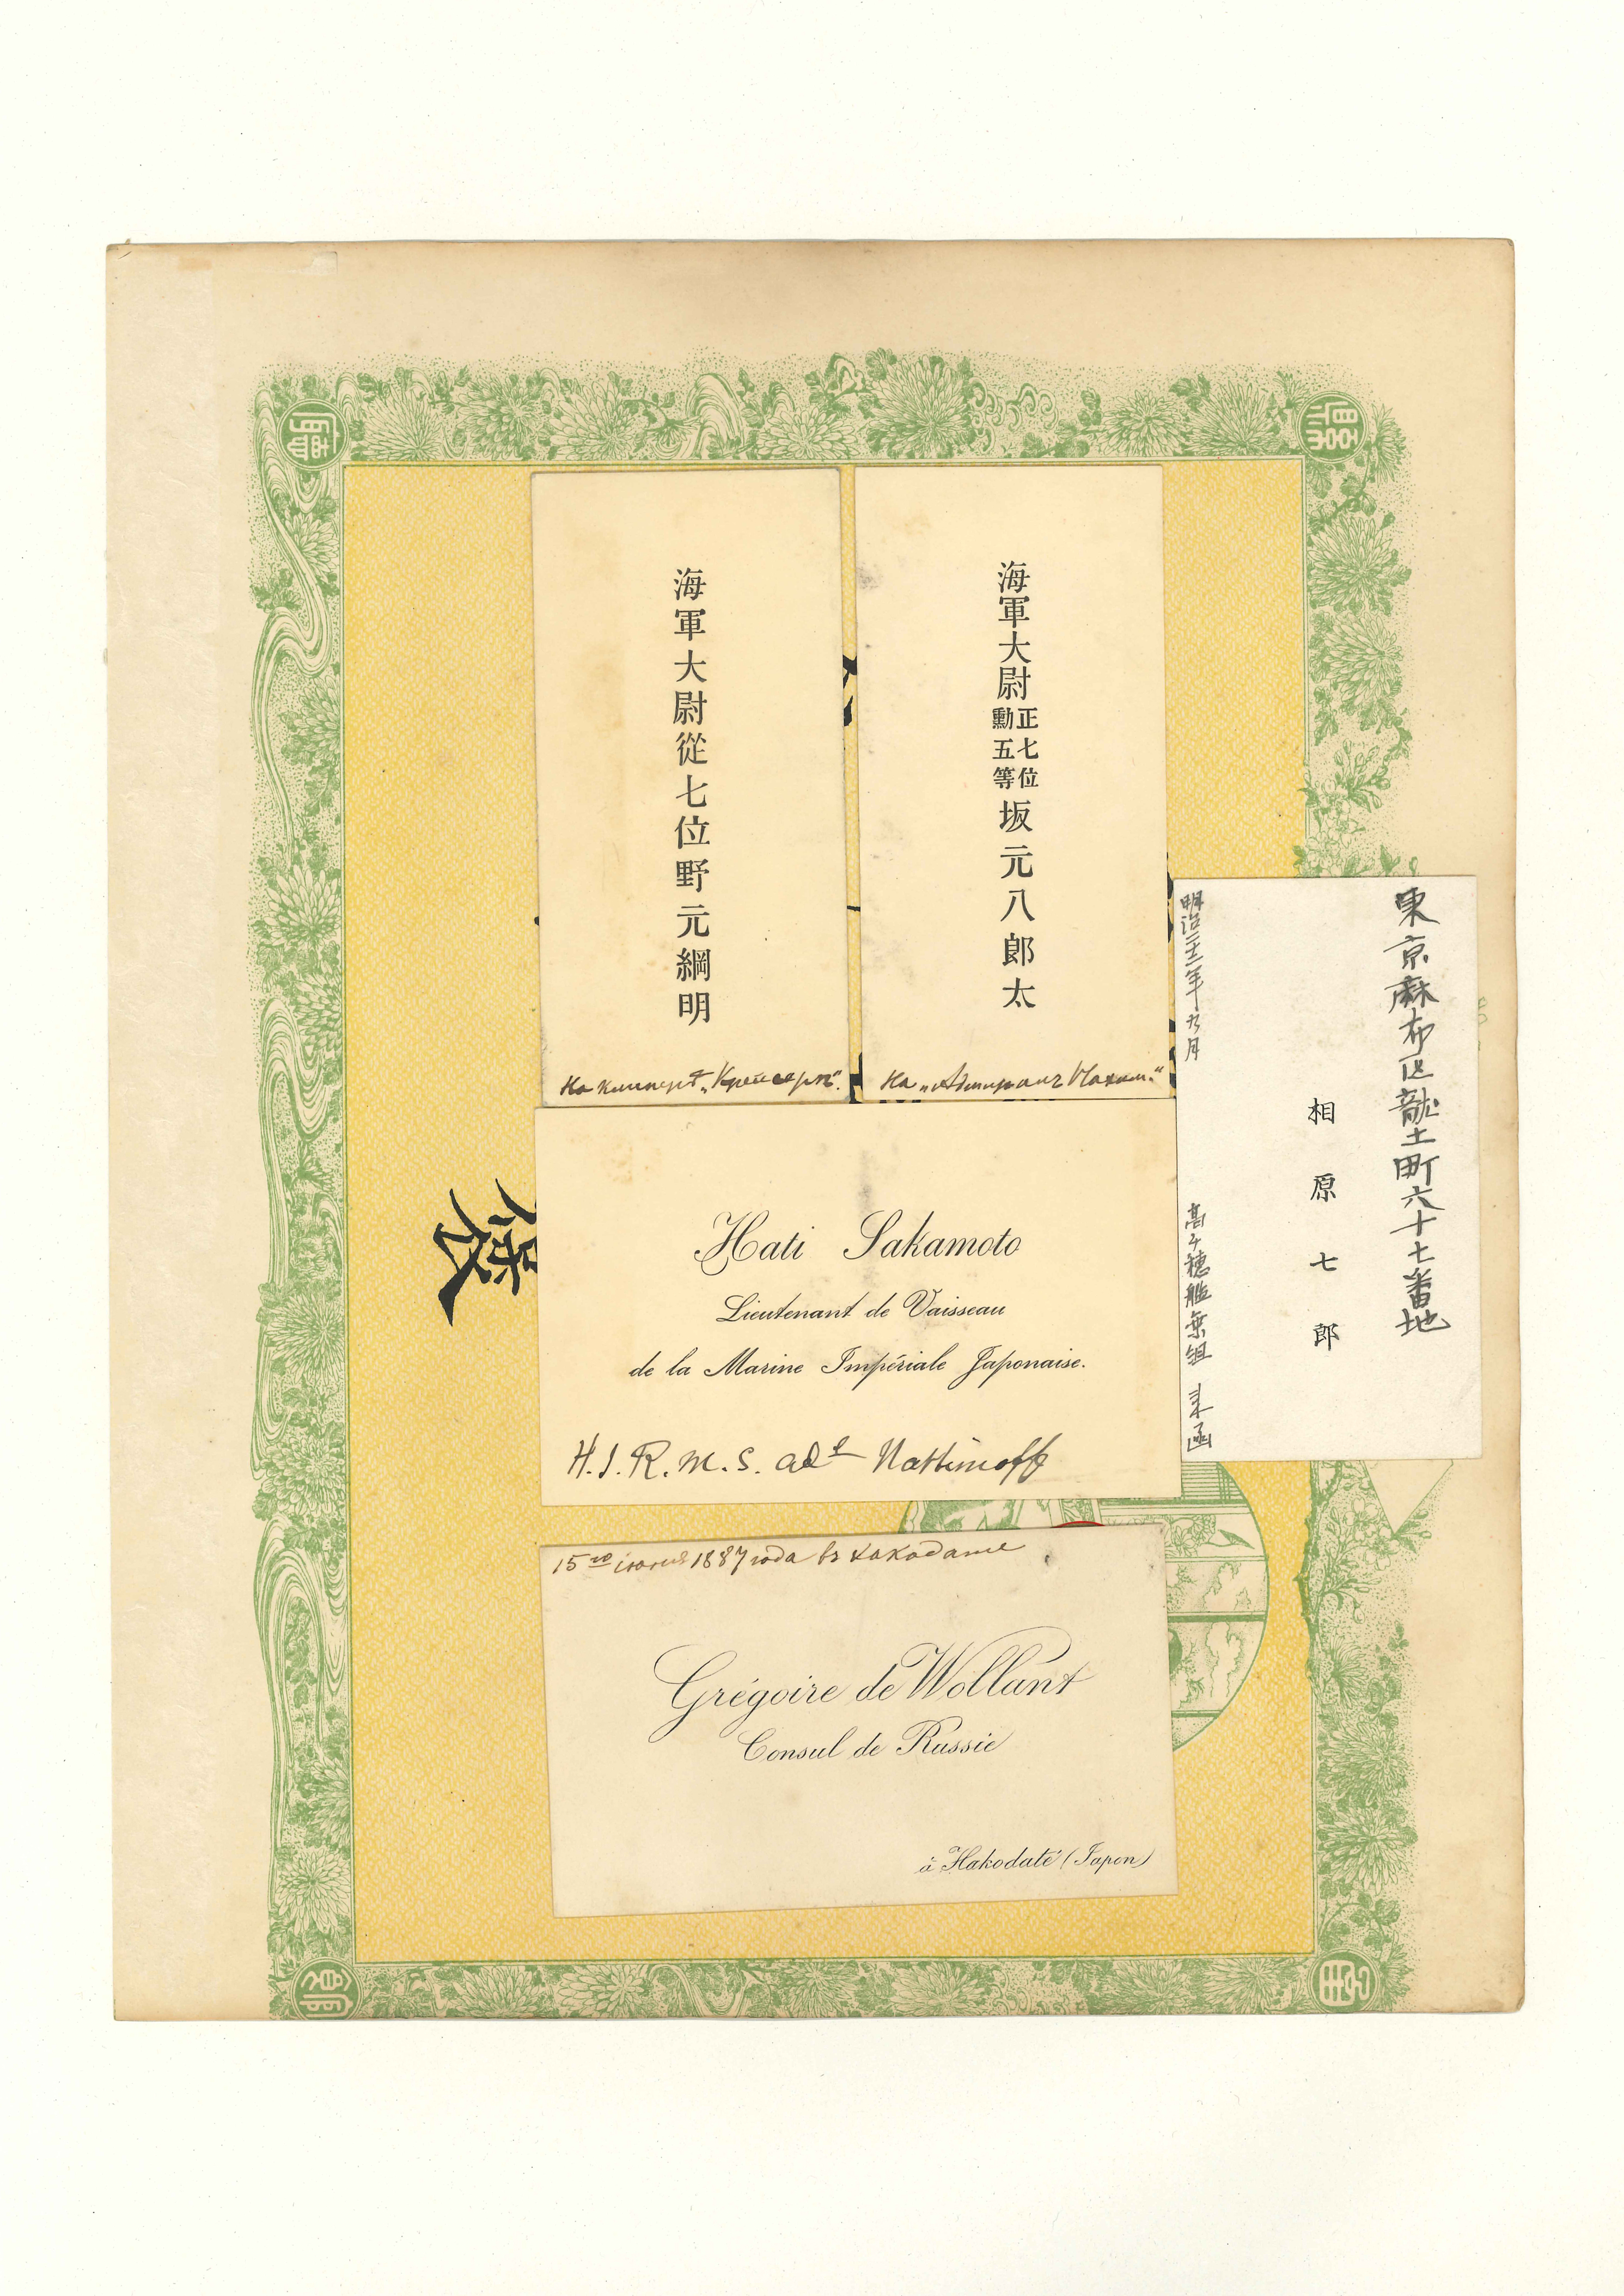 海軍大尉正七位勳五等坂元八郎太
На „Адмиралъ Нахим.“
海軍大尉從七位野元綱明
На клиперѣ „Крейсеръ“.
東京麻布区龍土町六十七番地
相原七郎
明治二十二年九月
高千穂艦乗組 来函
Hati Sakamoto
Lieutenant de Vaisseau
de la Marine Impériale Japonaise.
H.I.R.M.S. Adl Nakhimoff
15го іюня 1887 года въ Хакодате
Grégoire de Wollant
Consul de Russie
à Hakodaté (Japon)